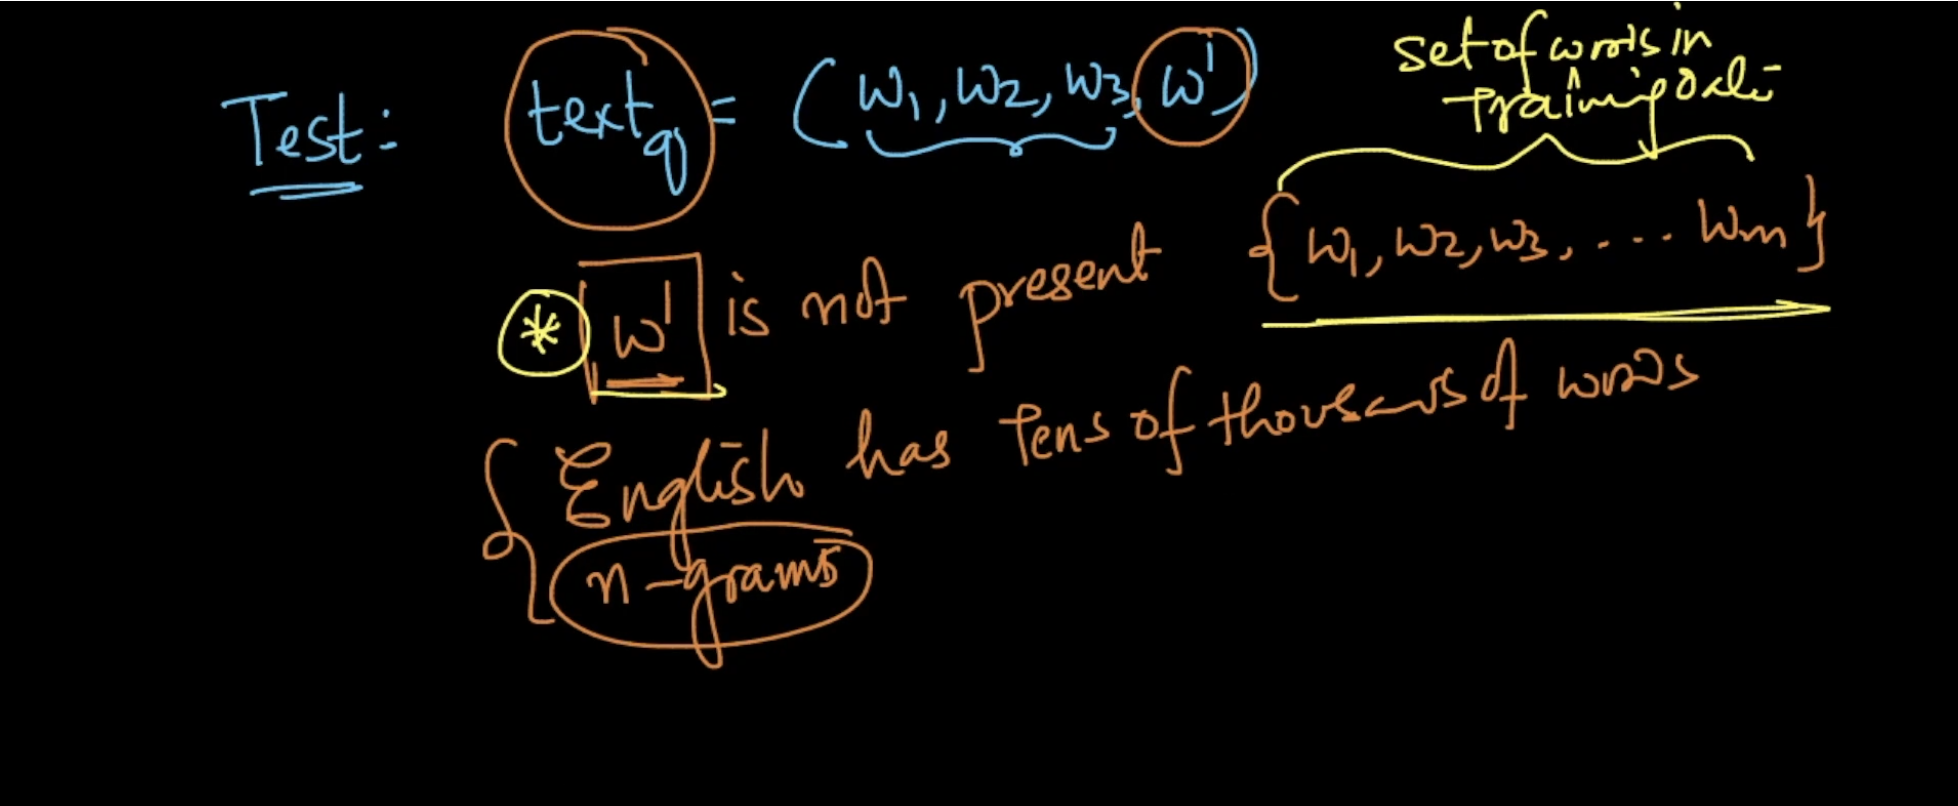 Test: text_q = (w₁, w₂, w₃, w')
set of words in
Training Data
* w' is not present {w₁, w₂, w₃, .... wₘ}
English has Tens of thousands of words
n-grams